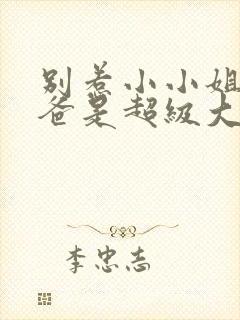 别惹小小姐
爸是超级大
李忠志